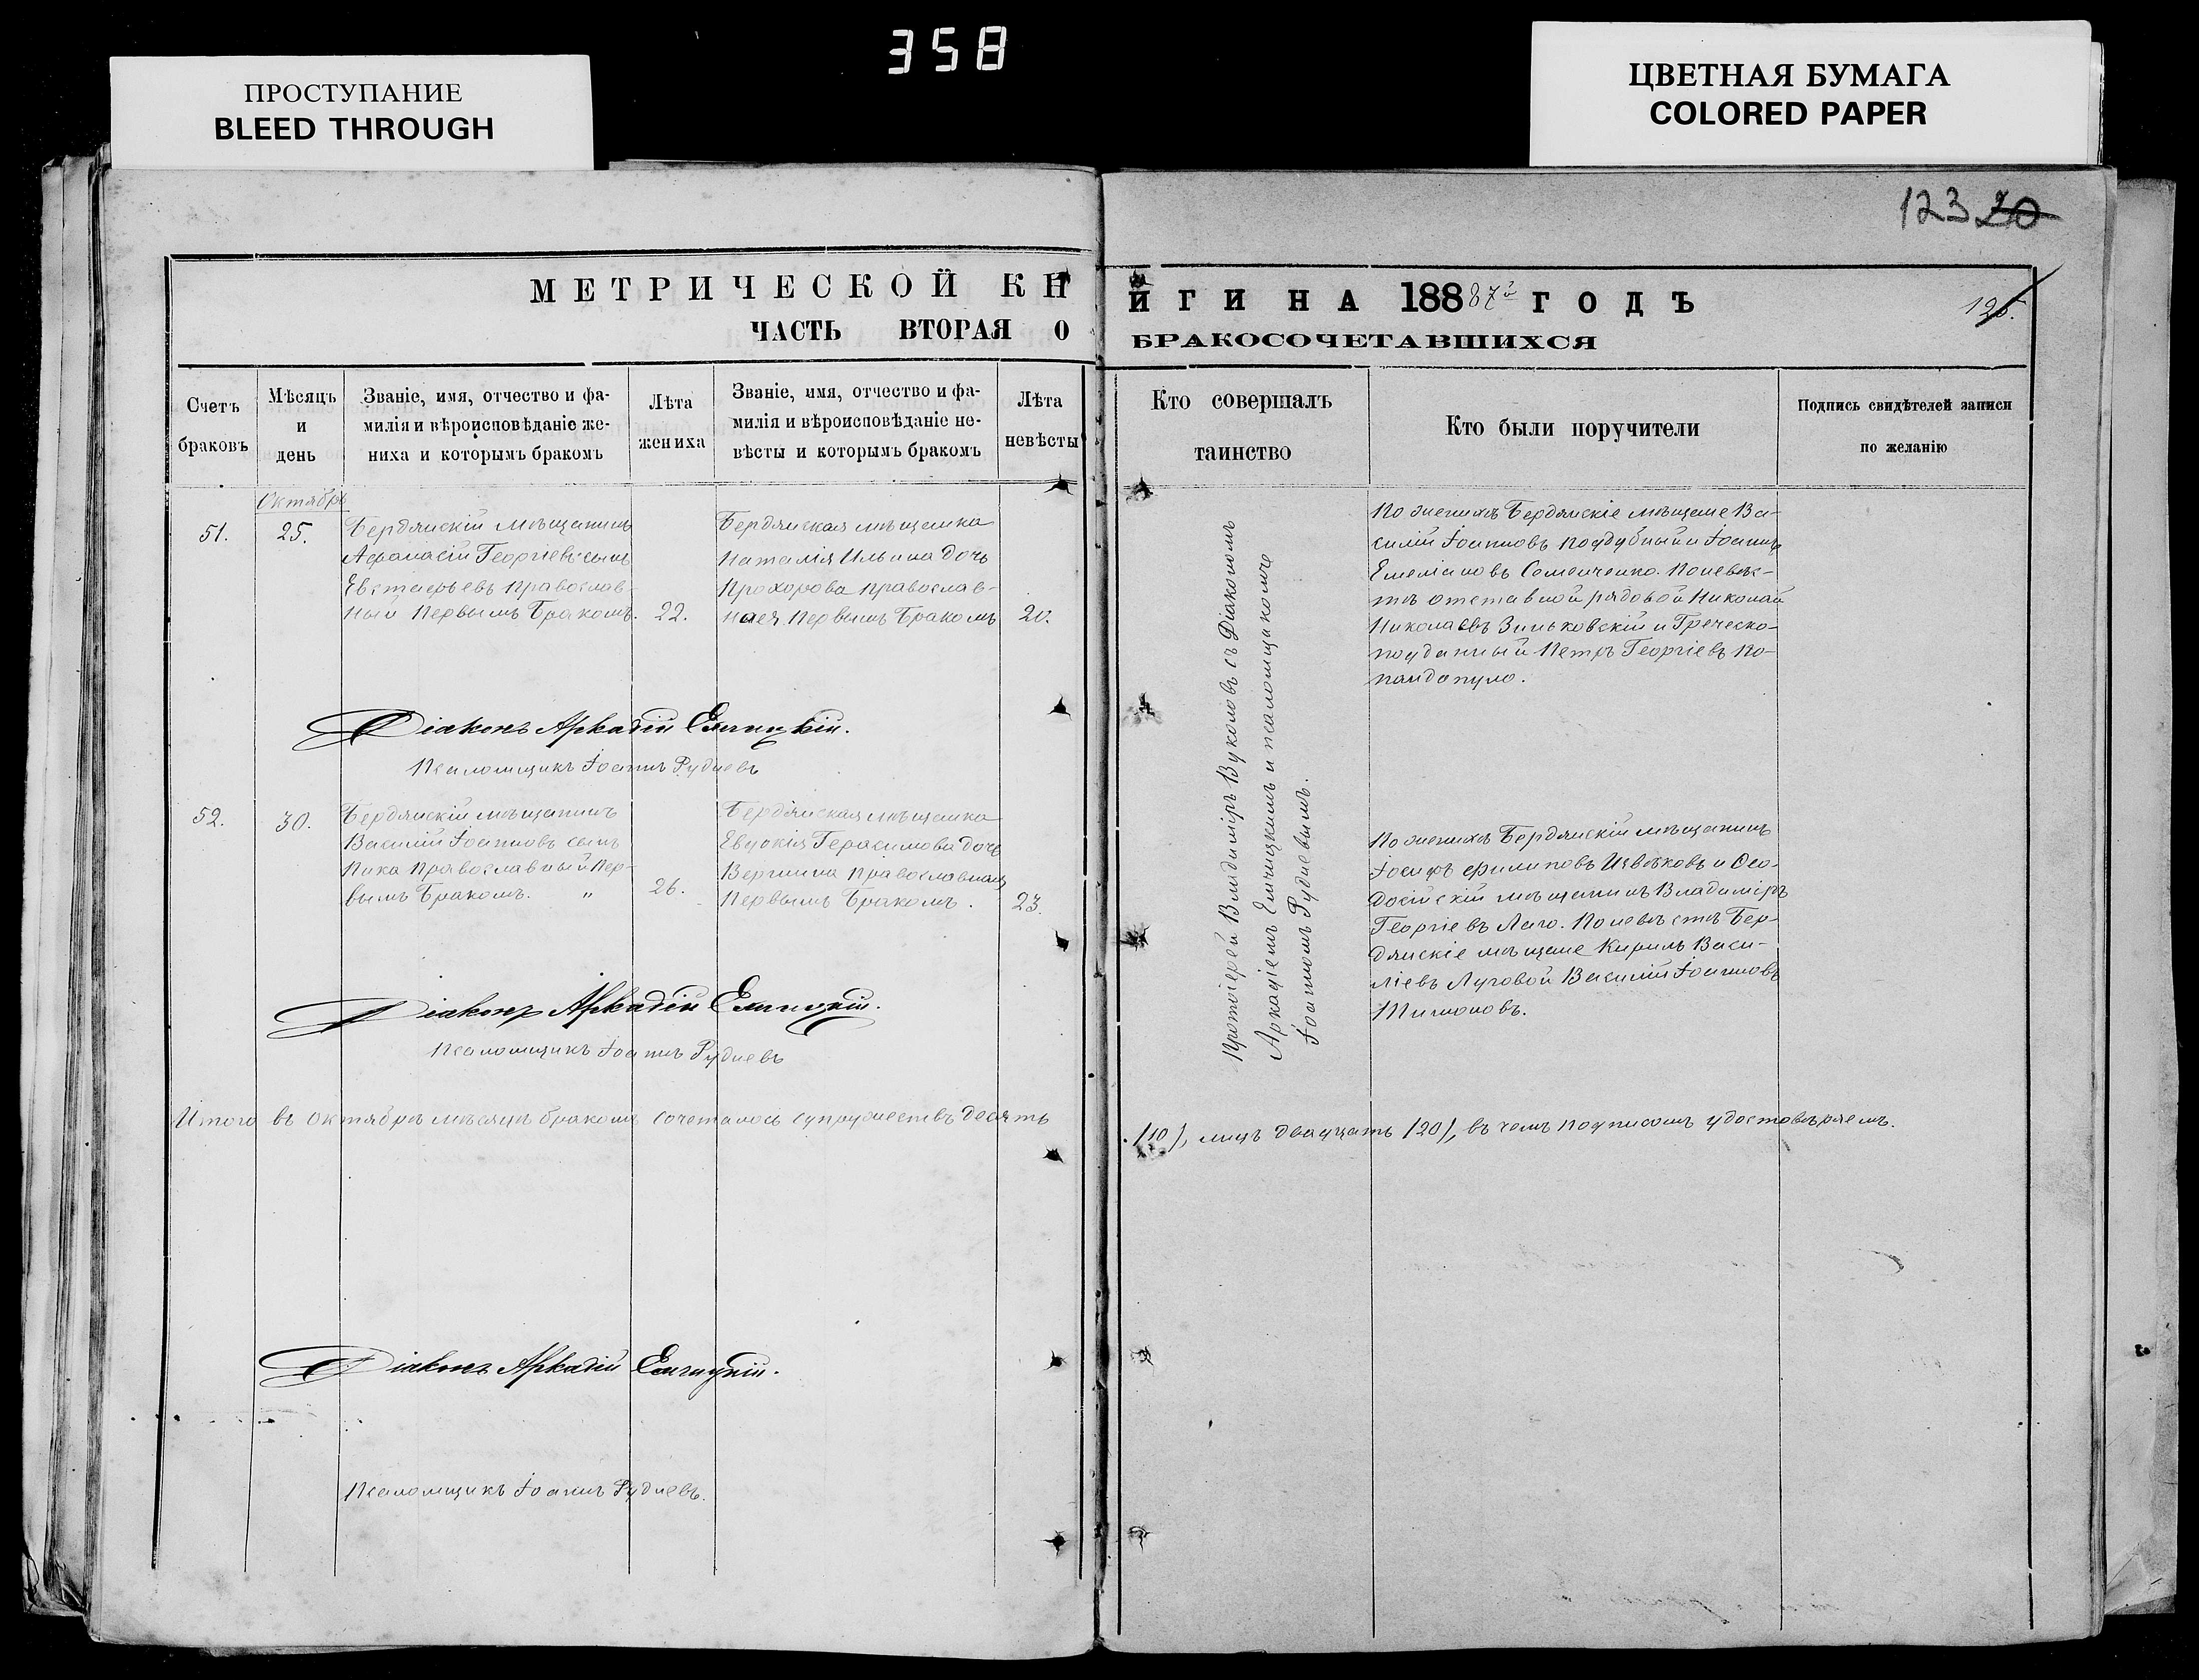 358
ПРОСТУПАНИЕ
BLEED THROUGH
ЦВЕТНАЯ БУМАГА
COLORED PAPER
123 20
МЕТРИЧЕСКОЙ КНИГИ НА 188 87 ГОДЪ
125.
ЧАСТЬ ВТОРАЯ О БРАКОСОЧЕТАВШИХСЯ
Счетъ
браковъ
Мѣсяцъ
и
день
Званіе, имя, отчество и фа-
милія и вѣроисповѣданіе же-
ниха и которымъ бракомъ
Лѣта
жениха
Званіе, имя, отчество и фа-
милія и вѣроисповѣданіе не-
вѣсты и которымъ бракомъ
Лѣта
невѣсты
Кто совершалъ
таинство
Кто были поручители
Подпись свидѣтелей записи
по желанію
Октябрь
51.
25.
Бердянскій мѣщанинъ
Афанасій Георгіевъ сынъ
Евстафьевъ православ-
ный первымъ бракомъ.
22.
Бердянская мѣщанка
Наталія Ильина дочь
Прохорова православ-
ная первымъ бракомъ
20.
Протоіерей Владиміръ Вуколовъ съ Діакономъ
Аркадіемъ Елчицкимъ и псаломщикомъ
Іоанномъ Рудневымъ.
По женихѣ Бердянскіе мѣщане Ва-
силій Іоанновъ Поддубный и Іоаннъ
Емеліановъ Семенченко. По невѣс-
тѣ отставной рядовой Николай
Николаевъ Зиньковскій и Греческо-
подданный Петръ Георгіевъ По-
пандопуло.
Діаконъ Аркадій Елчицкій.
Псаломщикъ Іоаннъ Рудневъ
52.
30.
Бердянскій мѣщанинъ
Василій Іоанновъ сынъ
Пика православный пер-
вымъ бракомъ. "
26.
Бердянская мѣщанка
Евдокія Герасимова дочь
Вершина православная
первымъ бракомъ.
23.
По женихѣ Бердянскій мѣщанинъ
Іосифъ Филиповъ Извѣковъ и Ѳео-
досійскій мѣщанинъ Владиміръ
Георгіевъ Лаго. По невѣстѣ Бер-
дянскіе мѣщане Кирилъ Васи-
ліевъ Луговой Василій Іоанновъ
Тихоновъ.
Діаконъ Аркадій Елчицкій.
Псаломщикъ Іоаннъ Рудневъ
Итого въ октябрѣ мѣсяцѣ бракомъ сочеталось супружествъ десять (10), лицъ двадцать (20), въ чемъ подписомъ удостовѣряемъ.
Діаконъ Аркадій Елчицкій.
Псаломщикъ Іоаннъ Рудневъ.